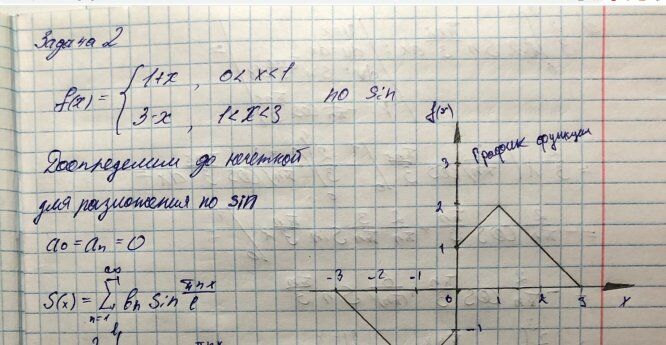 Задача 2
f(x) = { 1+x , 0<x<1
3-x , 1<x<3
по sin
Доопределим до нечетной
для разложения по sin
a₀ = aₙ = 0
S(x) = ∑ₙ₌₁^∞ bₙ sin πnx/l
πnx
f(x)
График функции
3
2
1
-3 -2 -1 0 1 2 3 x
-1